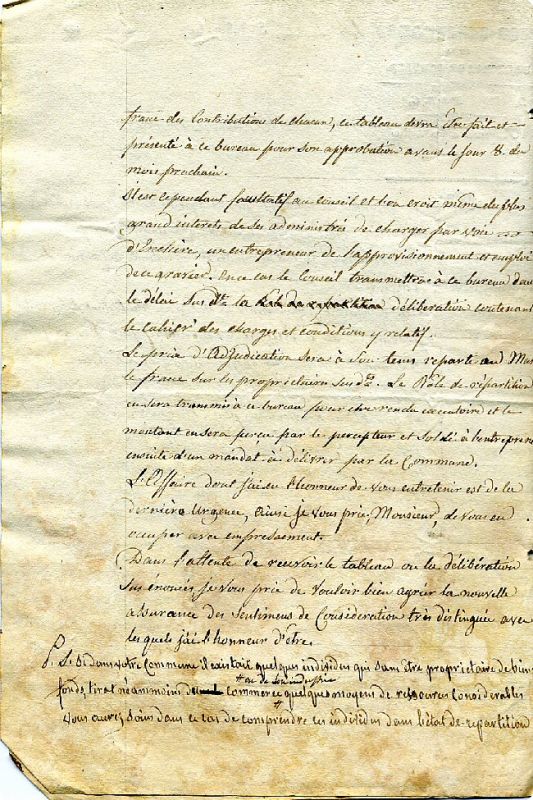 franc des Contributions de chacun, ce tableau devra être fait et
présenté à ce bureau pour son approbation avant le jour 8 du
mois prochain.
Il est cependant facultatif au conseil et l'on croit même du plus
grand interets de ses administrés de charger par voie
d'Enchère, un entrepreneur de l'approvisionnement et emploi
de ce gravier. En ce cas le Conseil transmettra à ce bureau dans
le délai susdt. la déliberation contenant
le cahier des charges et conditions y relatif.
Le prix d'Adjudication sera à son tems reparti au Marc
le franc sur les proprietaires susdts. Le Rôle de répartition
en sera transmis à ce bureau pour être rendu exécutoire et le
montant en sera perçu par le percepteur et soldé à l'entrepreneur
ensuite d'un mandat à délivrer par la Commune.
L'Affaire dont j'ai eu l'honneur de vous entretenir est de la
dernière urgence, ainsi je vous prie, Monsieur, de vous en
occuper avec empressement.
Dans l'attente de recevoir le tableau ou la délibération
sus énoncés je vous prie de vouloir bien agréer la nouvelle
assurance des sentimens de Considération très distinguée avec
lesquels j'ai l'honneur d'être.
P. S. Si dans votre Commune il existait quelques individus qui sans être proprietaire de biens
+ ou de son industrie
fonds, tirat néanmoins de commerce + quelques moyens de ressources Considerables
Vous aurez soins dans ce cas de comprendre ces individus dans l'état de repartition